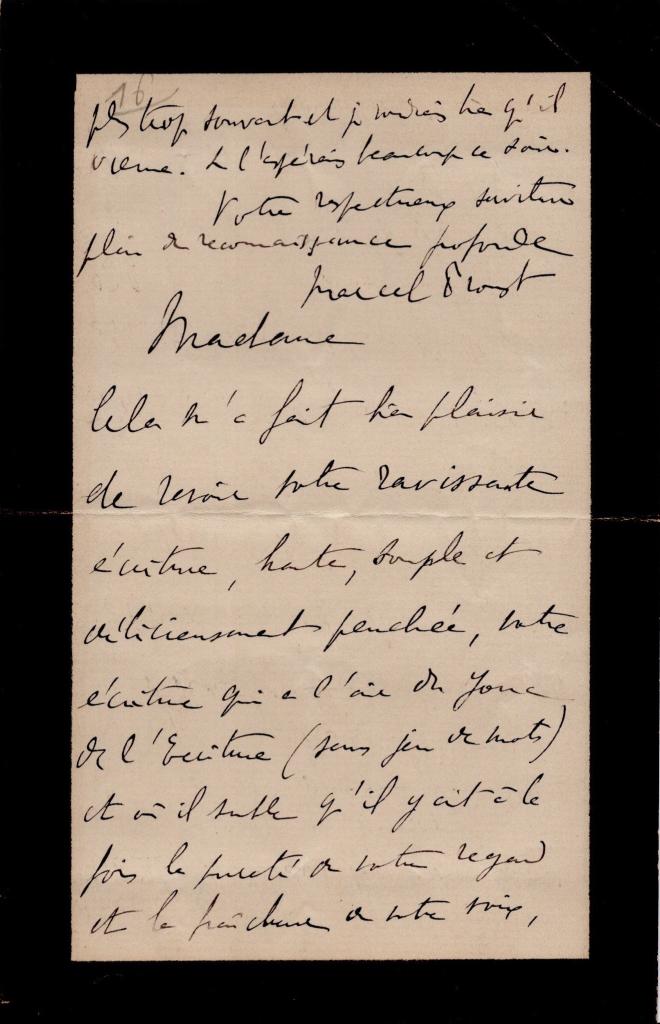 16
plus trop souvent et je voudrais bien qu'il
vienne. Je l'espérais beaucoup ce soir.
Votre respectueux serviteur
plein de reconnaissance profonde
Marcel Proust
Madame
Cela m'a fait bien plaisir
de revoir votre ravissante
écriture, haute, souple et
délicieusement penchée, votre
écriture qui a l'air du Jonc
de l'Ecriture (sans jeu de mots)
et où il semble qu'il y ait à la
fois la pureté de votre regard
et la fraîcheur de votre voix,